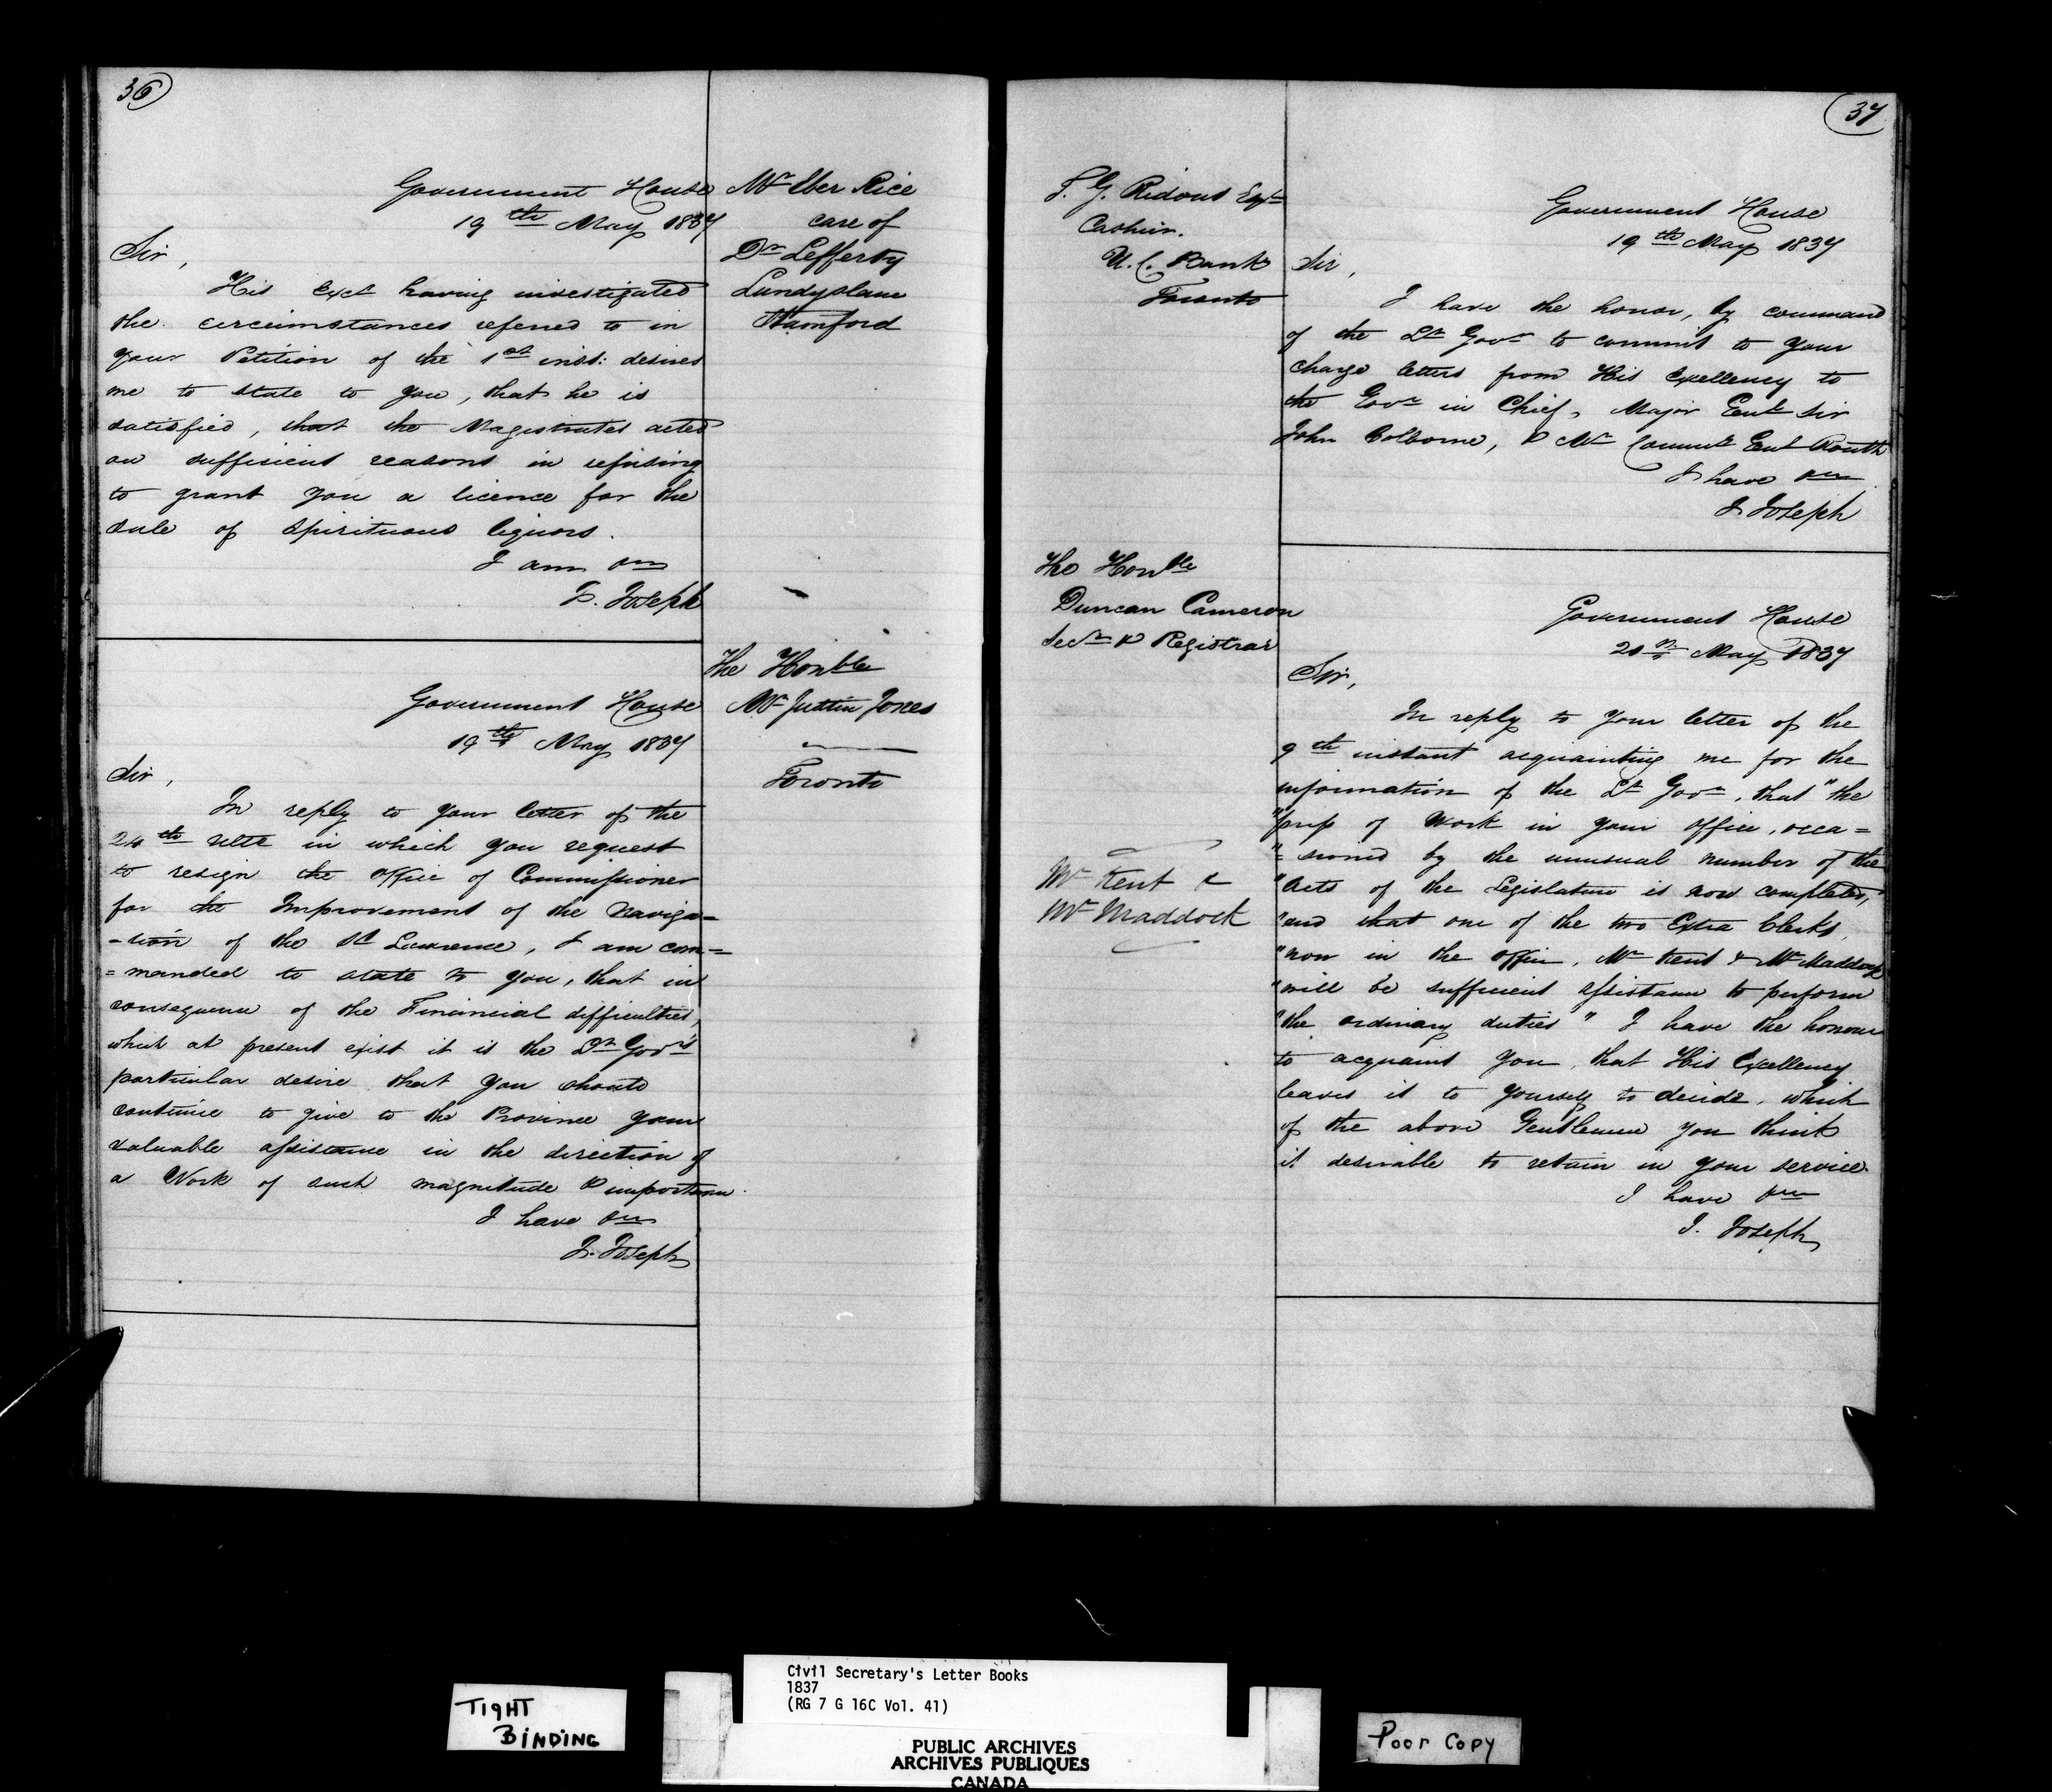 36
Government House
19th May 1837
Mr Eber Rice
care of
Dr Lefferty
Lundyslane
Stamford
Sir,
His Excy having investigated
the circumstances referred to in
your Petition of the 1st inst: desires
me to state to you, that he is
satisfied, that the Magistrates acted
on sufficient reasons in refusing
to grant you a licence for the
sale of spirituous liquors.
I am &c
J. Joseph
The Honble
Mr Justice Jones
Toronto
Government House
19th May 1837
Sir,
In reply to your letter of the
24th ulto in which you request
to resign the office of Commissioner
for the Improvement of the Naviga=
=tion of the St Lawrence, I am com=
=manded to state to you, that in
consequence of the Financial difficulties,
which at present exist it is the Lt Govr's
particular desire that you should
continue to give to the Province your
valuable assistance in the direction of
a Work of such magnitude & importance.
I have &c
J. Joseph
37
T. G. Ridout Esqre
Cashier.
U. C. Bank
Toronto
Government House
19th May 1837
Sir,
I have the honor, by command
of the Lt Govr to commit to your
charge letters from His Excellency to
the Govr in Chief, Major Genl Sir
John Colborne, & Mr Commy Genl Routh
I have &c
J Joseph
The Honble
Duncan Cameron
Secy & Registrar
Government House
May 1837
Sir,
In reply to your letter of the
9th instant acquainting me for the
information of the Lt Govr, that "the
"press of Work in your office, occa=
"=sioned by the unusual number of the
"Acts of the Legislature is now completed,
"and that one of the two Extra Clerks,
"now in the office, Mr Kent & Mr Maddock
"will be sufficient assistance to perform
"the ordinary duties" I have the honour
to acquaint you, that His Excellency
leaves it to yourself to decide, which
of the above Gentlemen you think
it desirable to retain in your service.
I have &c
J. Joseph
Mr Kent &
Mr Maddock
TIGHT
BINDING
Civil Secretary's Letter Books
1837
(RG 7 G 16C Vol. 41)
PUBLIC ARCHIVES
ARCHIVES PUBLIQUES
CANADA
Poor Copy